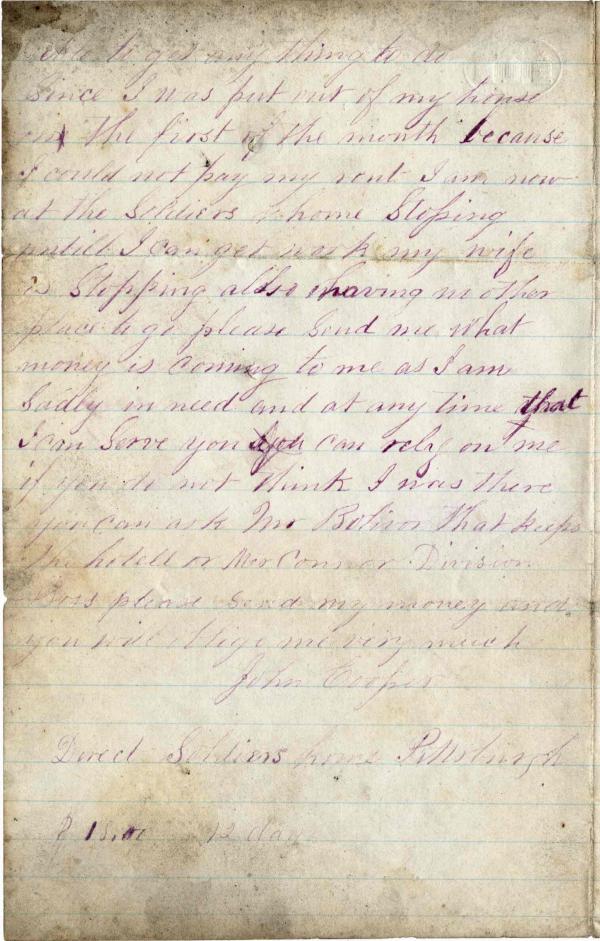 to get any thing to do
Since I was put out of my house
on the first of the month because
I could not pay my rent I am now
at the Soldiers home Stoping
untill I can get work my wife
is Stopping allso having no other
place to go please Send me what
money is coming to me as I am
Sadly in need and at any time that
I can Serve you you can rely on me
if you do not think I was there
you can ask Mr Bolivor that keeps
the hotell or Mr Connor Division
Boss please Send my money and
you will oblige me very much
John Cooper
Direct Soldiers home Pittsburgh
12 day